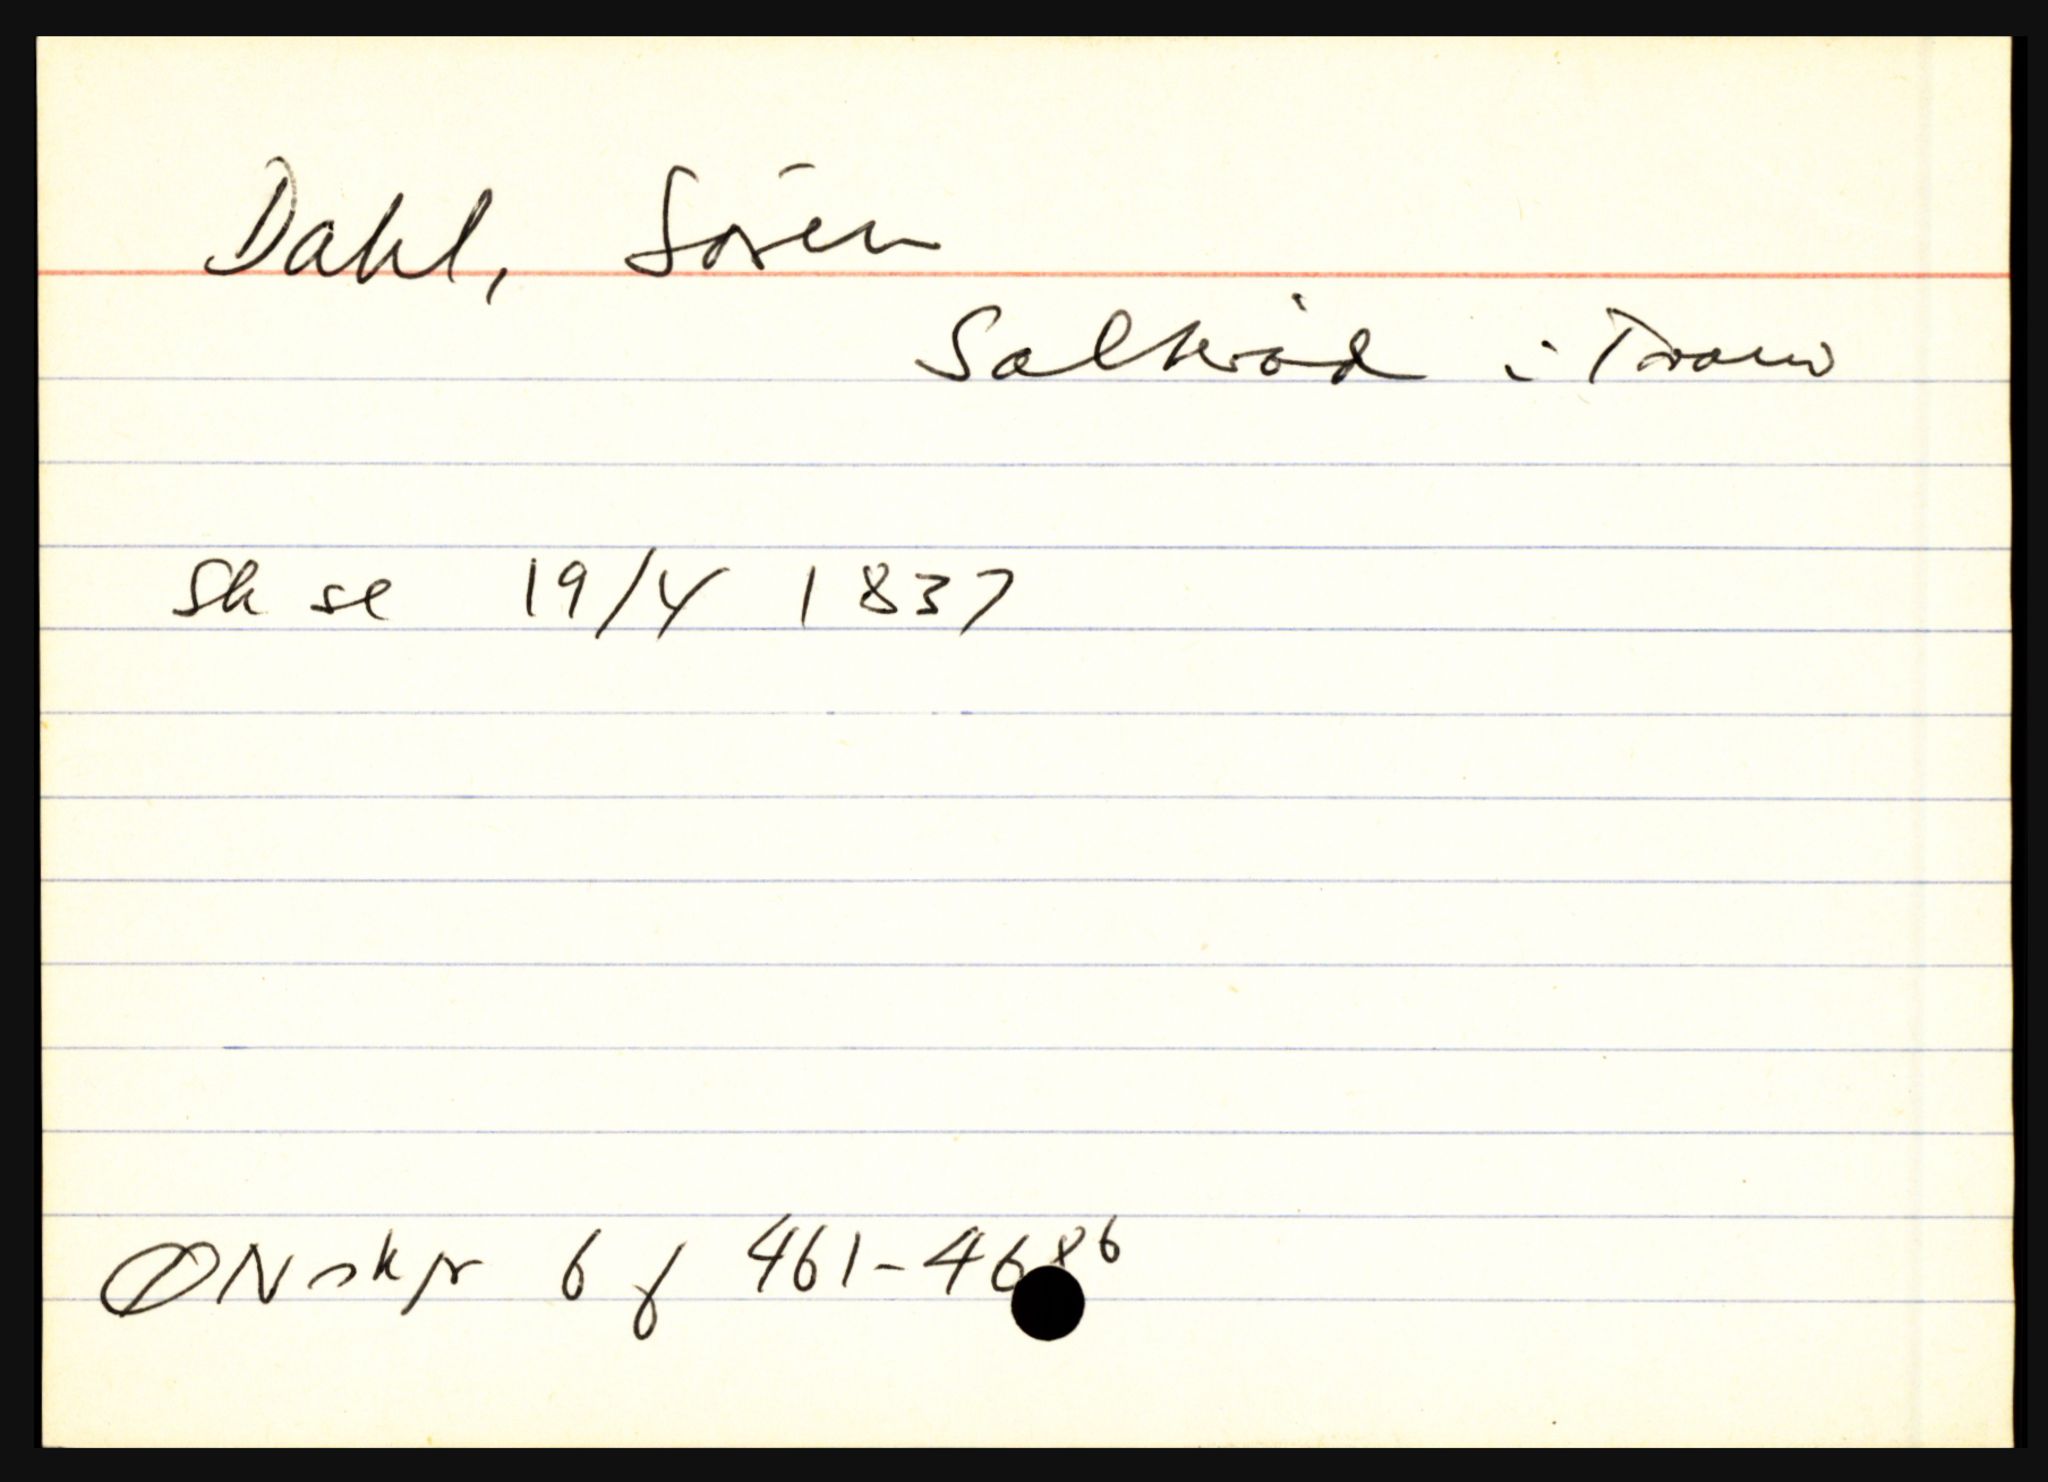 Dahl, Søren
Saltrød i Tromø
Sk se 19/4 1837
ØN skpr 6 f 461-468b